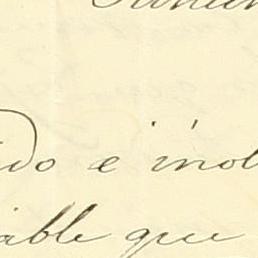 ido e inol
able que